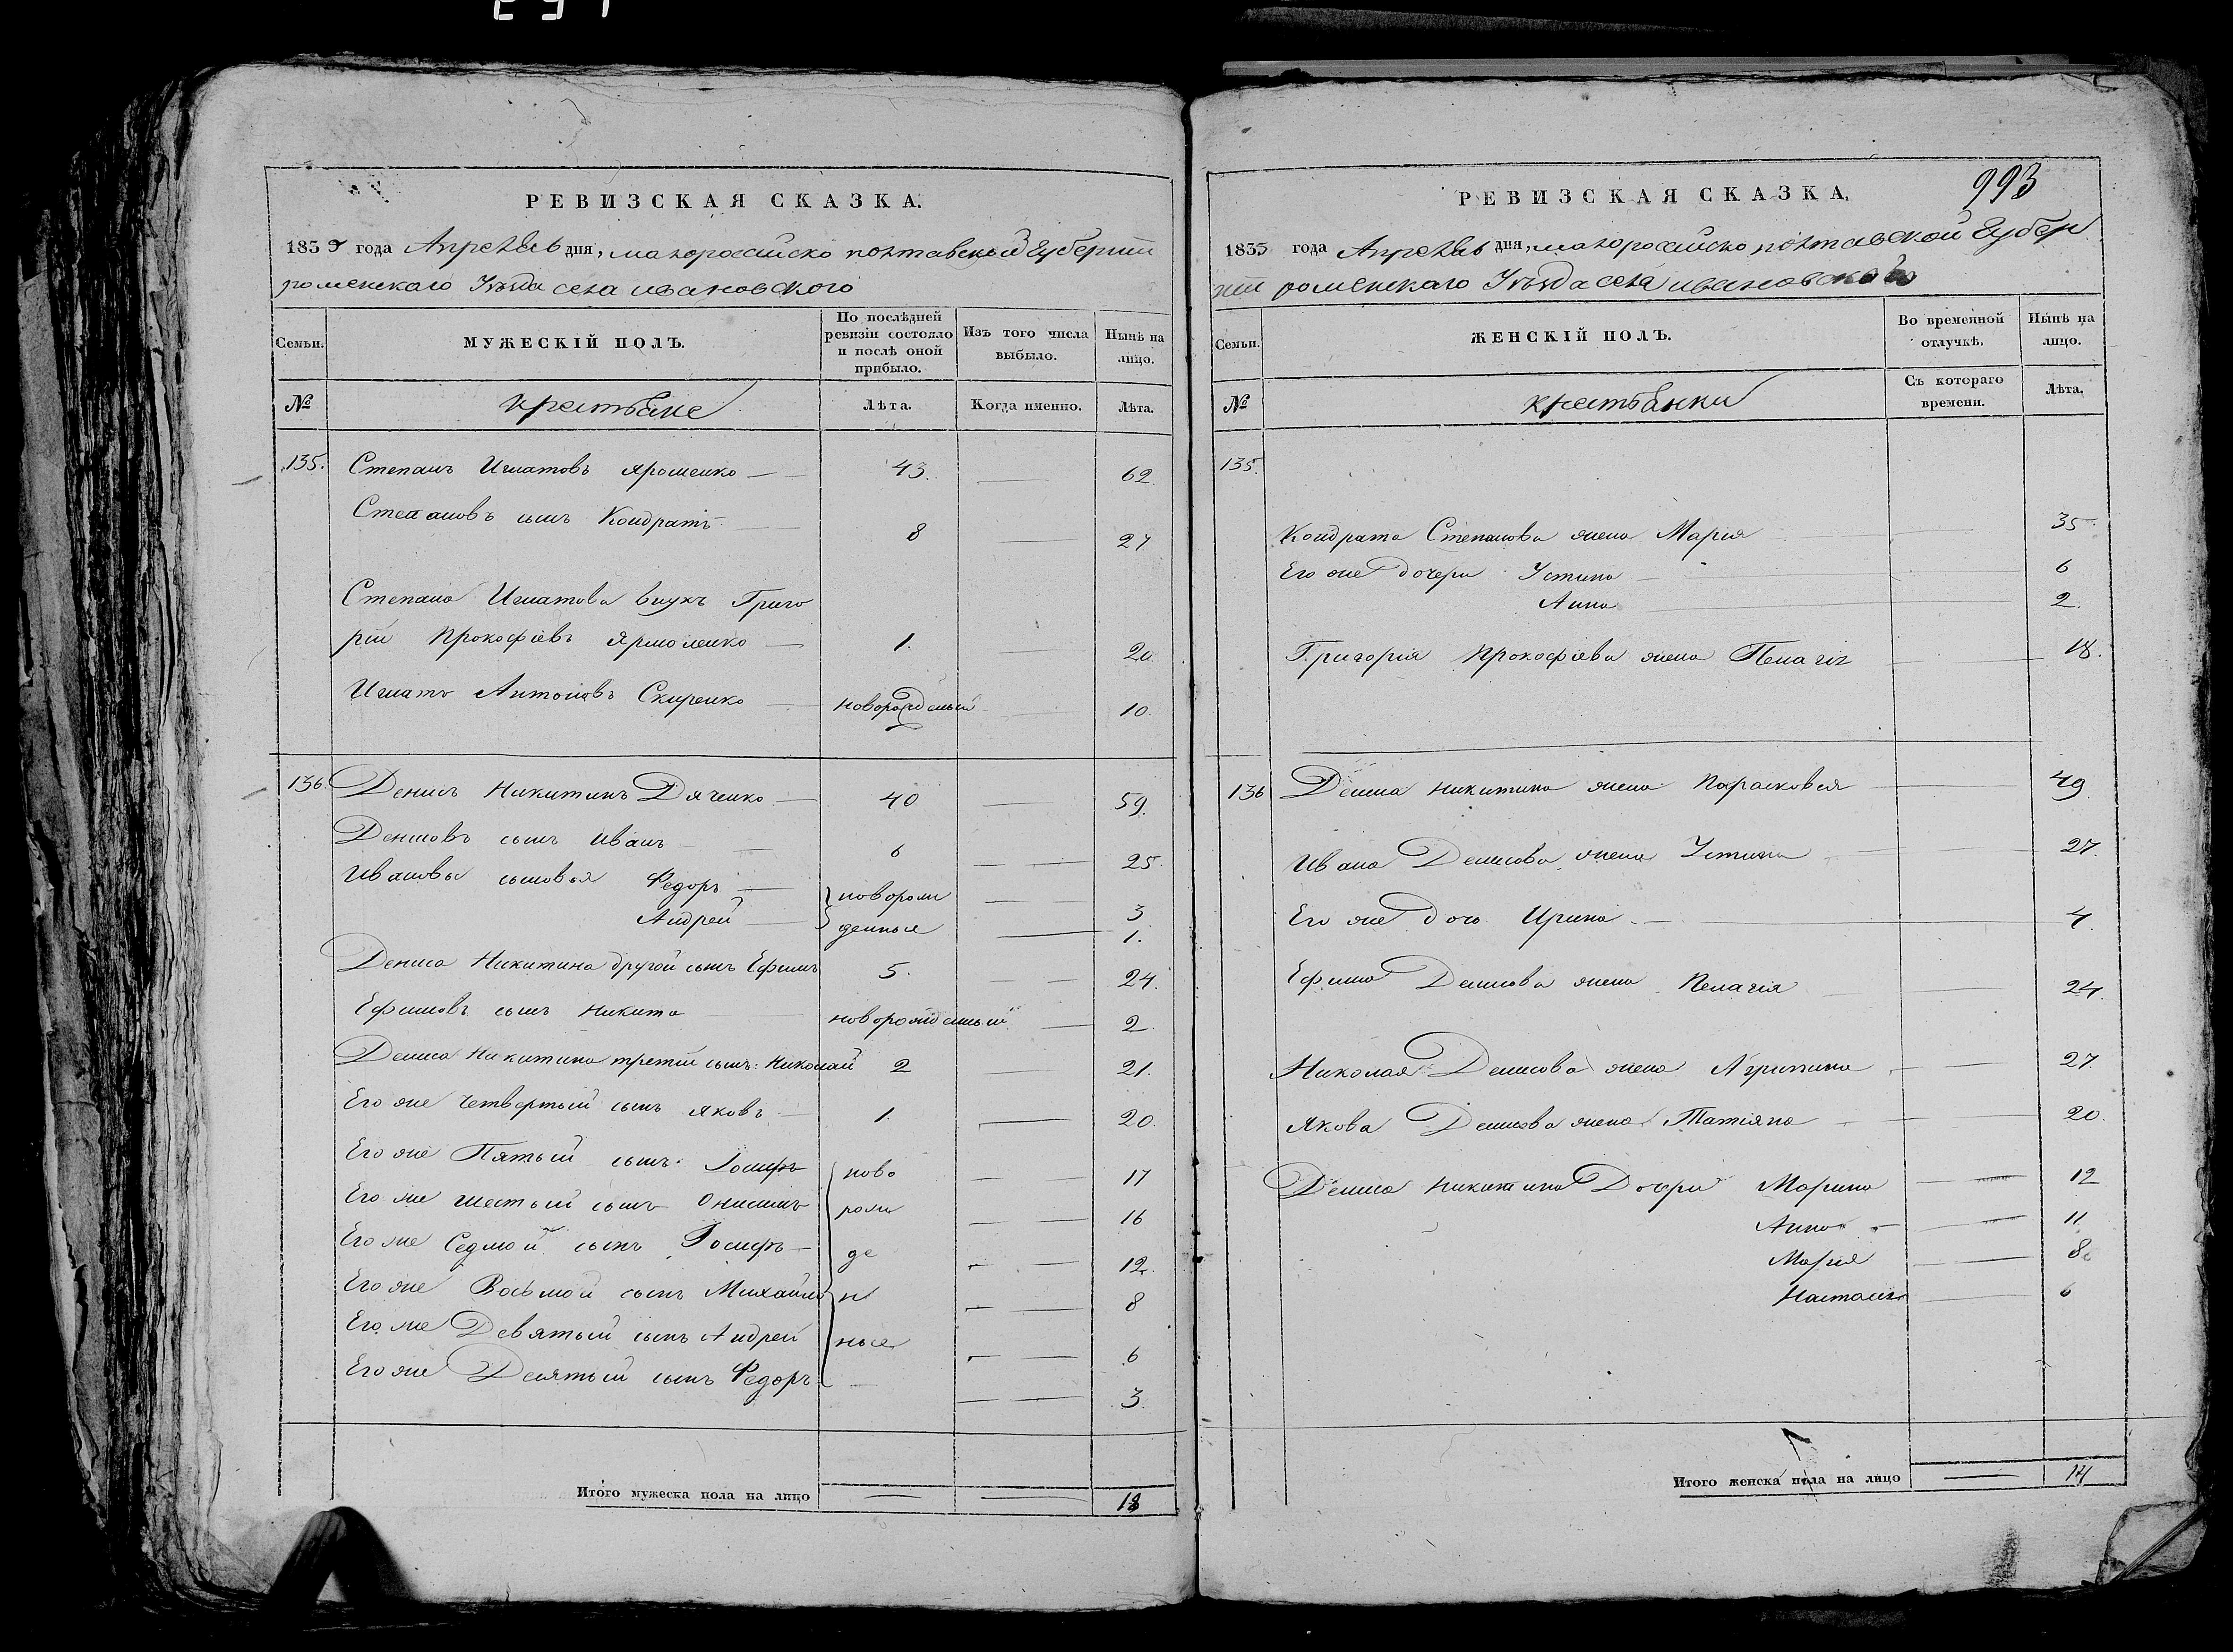 РЕВИЗСКАЯ СКАЗКА.
1835 года Апреля дня, малороссийско полтавской Губернии
роменскаго Уезда села ивановского
Семьи.
МУЖЕСКІЙ ПОЛЪ.
По послѣдней ревизіи состояло и послѣ оной прибыло.
Изъ того числа выбыло.
Нынѣ на лицо.
№
крестьяне
Лѣта.
Когда именно.
Лѣта.
135. Степанъ Игнатовъ Ярошенко 43. 62.
Степановъ сынъ Кондратъ 8 27
Степана Игнатова внукъ Григо
рій Прокофіевъ Ярмоленко 1. 20
Игнатъ Антоновъ Скиренко новорожденый 10.
136. Денисъ Никитинъ Дяченко 40 59.
Денисовъ сынъ Иванъ 6 25.
Ивановы сыновья Федоръ новорож 3
Андрей денные 1.
Дениса Никитина другой сынъ Ефимъ 5. 24.
Ефимовъ сынъ Никита новорожденный 2.
Дениса Никитина третій сынъ: Николай 2 21.
Его же четвертый сынъ Яковъ 1. 20.
Его же Пятый сынъ Іосифъ ново 17
Его же шестый сынъ Онисимъ рож 16
Его же Седмой сынъ Іосифъ де 12.
Его же Восьмой сынъ Михайло н 8
Его же Девятый сынъ Андрей ные 6
Его же Десятый сынъ Федоръ 3.
Итого мужеска пола на лицо 18
993
РЕВИЗСКАЯ СКАЗКА.
1835 года Апреля дня, малороссийско полтавской Губер
ніи роменскаго Уезда села ивановского
Семьи.
ЖЕНСКІЙ ПОЛЪ.
Во временной отлучкѣ.
Нынѣ на лицо.
№
крестьянки
Съ котораго времени.
Лѣта.
135.
Кондрата Степанова жена Марія 35.
Его же дочери Устина 6
Анна 2.
Григорія Прокофіева жена Пелагія 18.
136 Дениса Никитина жена Парасковея 49
Ивана Денисова жена Устина 27.
Его же дочь Ирина 4.
Ефима Денисова жена Пелагія 24.
Николая Денисова жена Агрипина 27.
Якова Денисова жена Татіяна 20.
Дениса Никитина Дочери Марина 12
Анна 11
Марія 8
Настасія 6
Итого женска пола на лицо 14